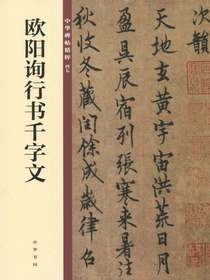 中华碑帖精粹
欧阳询行书千字文
中华书局
次韻
天地玄黃宇宙洪荒日月
盈昃辰宿列張寒來暑往
秋收冬藏閏餘成歲律呂